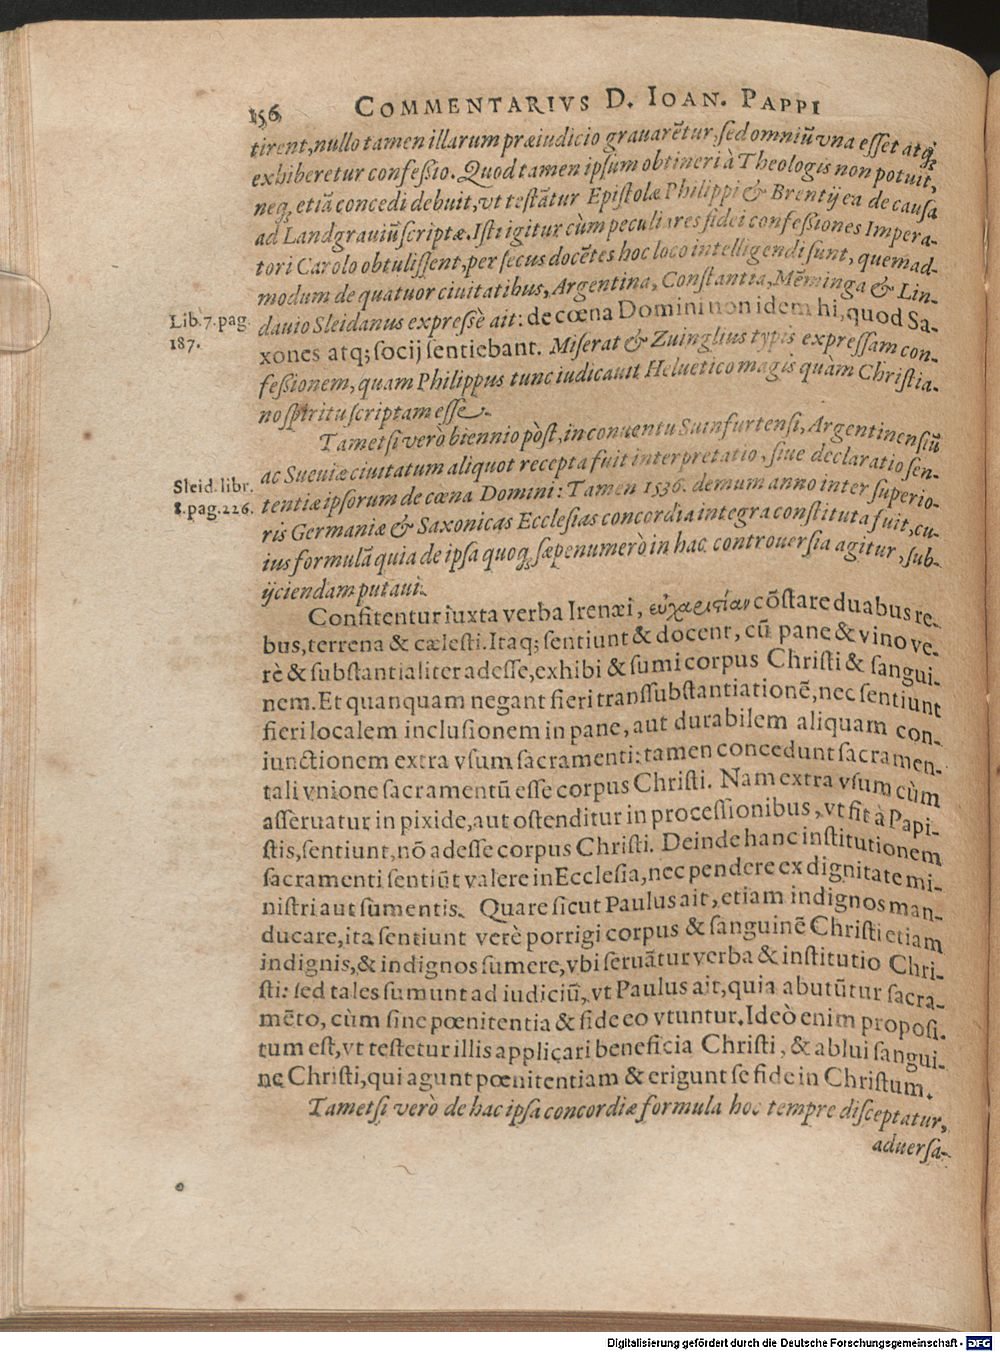 156 COMMENTARIVS D. IOAN. PAPPI
tirent, nullo tamen illarum præiudicio grauarẽtur, sed omniũ vna esset atq;
exhiberetur confeßio. Quod tamen ipsum obtineri à Theologis non potuit,
neq; etiã concedi debuit, vt testãtur Epistolæ Philippi & Brentij ea de causa
ad Landgrauiũ scriptæ. Isti igitur cùm peculiares fidei confeßiones Impera-
tori Carolo obtulissent, per secus docẽtes hoc loco intelligendi sunt, quemad-
modum de quatuor ciuitatibus, Argentina, Constantia, Mẽminga & Lin-
Lib. 7. pag.
187.
dauio Sleidanus expreßè ait: de cœna Domini non idem hi, quod Sa-
xones atq; socij sentiebant. Miserat & Zuinglius typis expressam con-
feßionem, quam Philippus tunc iudicauit Heluetico magis quàm Christia-
no spiritu scriptam esse.
Tametsi verò biennio pòst, in conuentu Suinfurtensi, Argentinensiũ
ac Sueuiæ ciuitatum aliquot recepta fuit interpretatio, siue declaratio sen-
Sleid. libr.
8. pag. 226.
tentiæ ipsorum de cœna Domini: Tamen 1536. demum anno inter superio-
ris Germaniæ & Saxonicas Ecclesias concordia integra constituta fuit, cu-
ius formulã quia de ipsa quoq; sæpenumerò in hac controuersia agitur, sub-
ijciendam putaui.
Confitentur iuxta verba Irenæi, εὐχαριστίαν cõstare duabus re-
bus, terrena & cælesti. Itaq; sentiunt & docent, cũ pane & vino ve-
rè & substantialiter adesse, exhibi & sumi corpus Christi & sangui-
nem. Et quanquam negant fieri transsubstantiationẽ, nec sentiunt
fieri localem inclusionem in pane, aut durabilem aliquam con-
iunctionem extra vsum sacramenti: tamen concedunt sacramen-
tali vnione sacramentũ esse corpus Christi. Nam extra vsum cùm
asseruatur in pixide, aut ostenditur in processionibus, vt fit à Papi-
stis, sentiunt, nõ adesse corpus Christi. Deinde hanc institutionem
sacramenti sentiũt valere in Ecclesia, nec pendere ex dignitate mi-
nistri aut sumentis. Quare sicut Paulus ait, etiam indignos man-
ducare, ita sentiunt verè porrigi corpus & sanguinẽ Christi etiam
indignis, & indignos sumere, vbi seruãtur verba & institutio Chri-
sti: sed tales sumunt ad iudiciũ, vt Paulus ait, quia abutũtur sacra-
mẽto, cùm sine pœnitentia & fide eo vtuntur. Ideò enim proposi-
tum est, vt testetur illis applicari beneficia Christi, & ablui sangui-
ne Christi, qui agunt pœnitentiam & erigunt se fide in Christum.
Tametsi verò de hac ipsa concordiæ formula hoc tempre disceptatur,
aduersa-
Digitalisierung gefördert durch die Deutsche Forschungsgemeinschaft - DFG